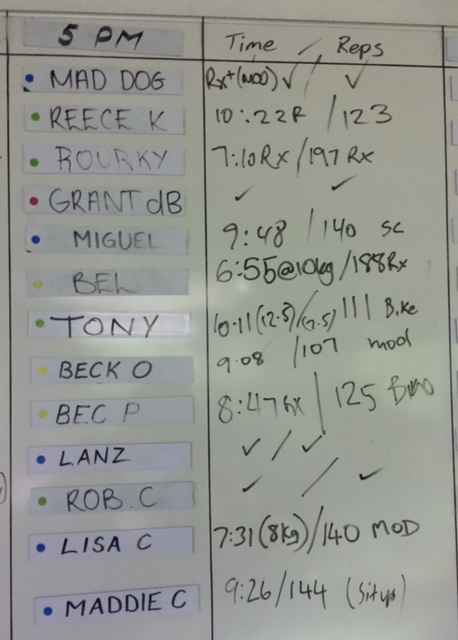 5 PM Time / Reps
MAD DOG Rx+ (MOD) ✓ / ✓
REECE K 10:22R / 123
ROURKY 7:10 Rx / 197 Rx
GRANT dB ✓ ✓
MIGUEL 9:48 / 140 SC
BEL 6:55@10kg / 188Rx
TONY 10.11 (12.5)/(7.5) 111 Bike
BECK O 9.08 / 107 mod
BEC P 8:47 Rx / 125
LANZ ✓ / ✓
ROB. C ✓ / ✓
LISA C 7:31 (8kg) / 140 MOD
MADDIE C 9:26 / 144 (Situps)